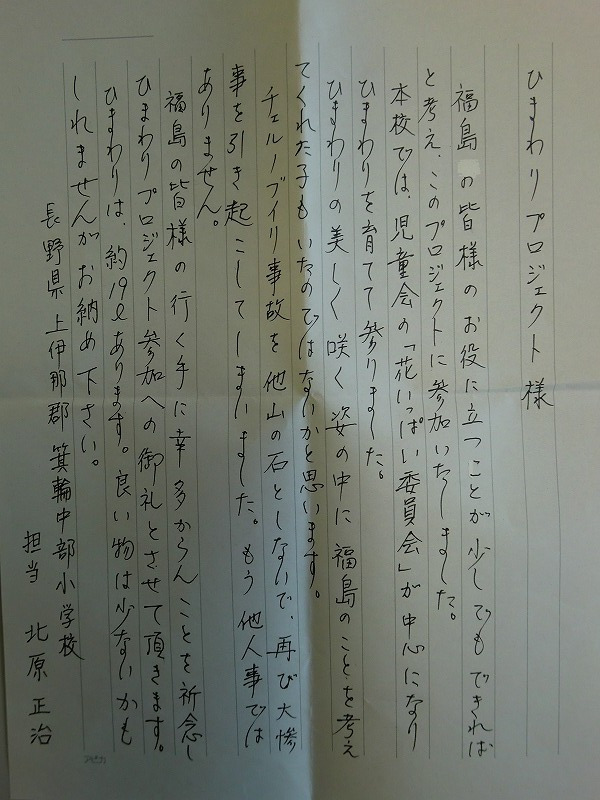 ひまわりプロジェクト様
福島の皆様のお役に立つことが少しでもできれば
と考え、このプロジェクトに参加いたしました。
本校では、児童会の「花いっぱい委員会」が中心になり
ひまわりを育てて参りました。
ひまわりの美しく咲く姿の中に福島のことを考え
てくれた子もいたのではないかと思います。
チェルノブイリ事故を他山の石としないで、再び大惨
事を引き起こしてしまいました。もう他人事では
ありません。
福島の皆様の行く手に幸多からんことを祈念し
ひまわりプロジェクト参加への御礼とさせて頂きます。
ひまわりは、約19ℓあります。良い物は少ないかも
しれませんがお納め下さい。
長野県上伊那郡箕輪中部小学校
担当 北原正治
アピカ